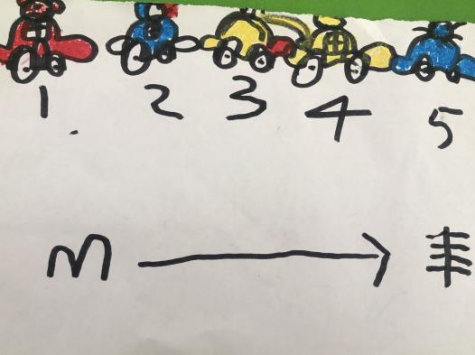 1 2 3 4 5
m →